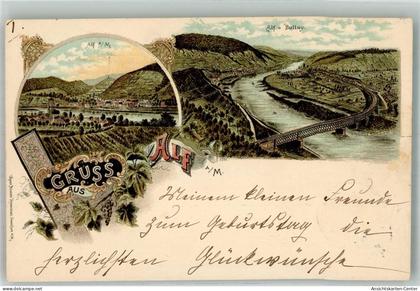 1.
Alf a/M.
Alf u. Bullay.
GRUSS
AUS
ALF
a/M.
Meinem kleinen Freunde
zum Geburtstag die
herzlichsten Glückwünsche
www.ansichtskarten-center.de
Ansichtskarten-Center